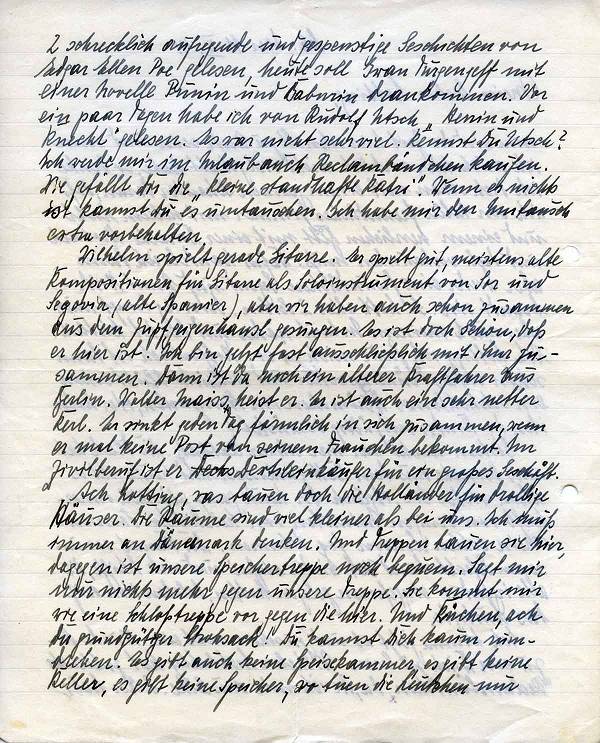 2 schrecklich aufregende und gespenstige Geschichten von
Edgar Allen Poe gelesen, heute soll Iwan Turgenjeff mit
einer Novelle Punin und Baburin drankommen. Vor
ein paar Tagen habe ich von Rudolf Utsch „Herrin und
Knecht" gelesen. Es war nicht sehr viel. Kennst Du Utsch?
Ich werde mir im Urlaub auch Reclambändchen kaufen.
Wie gefällt Dir die „kleine standhafte Katri". Wenn es nichts
ist kannst Du es umtauschen. Ich habe mir den Umtausch
extra vorbehalten.
Wilhelm spielt gerade Gitarre. Er spielt gut, meistens alte
Kompositionen für Gitarre als Soloinstrument von Sor und
Segovia (alte Spanier), aber wir haben auch schon zusammen
aus dem Zupfgeigenhansl gesungen. Es ist doch schön, daß
er hier ist. Ich bin jetzt fast ausschließlich mit ihm zu-
sammen. Dann ist da noch ein älterer Kraftfahrer aus
Berlin. Walter Maiss heist er. Er ist auch ein sehr netter
Kerl. Er sinkt jeden Tag förmlich in sich zusammen, wenn
er mal keine Post von seinem Frauchen bekommt. Im
Zivilberuf ist er Textileinkäufer für ein großes Geschäft.
Ach Mutting, was bauen doch die Holländer für drollige
Häuser. Die Räume sind viel kleiner als bei uns. Ich muß
immer an Dänemark denken. Und Treppen bauen sie hier,
dagegen ist unsere Speichertreppe noch bequem. Sagt mir
nur nichts mehr gegen unsere Treppe. Sie kommt mir
wie eine Schloßtreppe vor gegen die hier. Und Küchen, ach
Du grundgütger Strohsack! Du kannst Dich kaum rum-
drehen. Es gibt auch keine Speisekammer, es gibt keine
Keller, es gibt keine Speicher, wo tuen die Leutchen nur